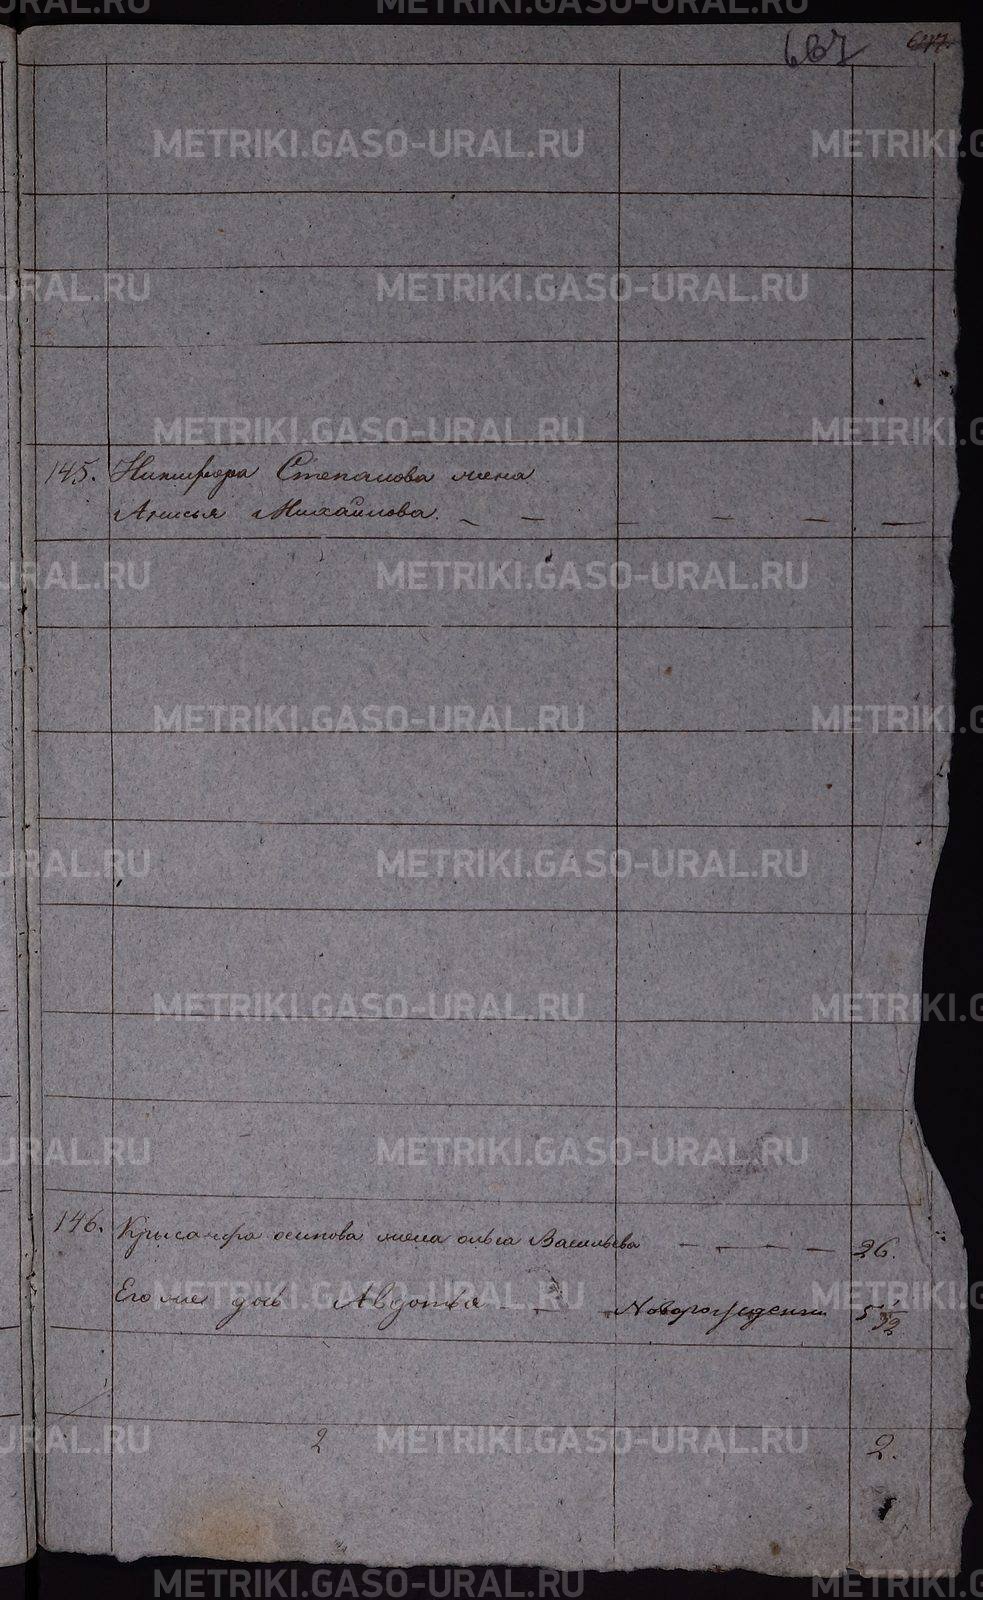 667
647.
145. Никифора Степанова жена
Анисья Михайлова. — — — — — —
146. Крысанфа осипова жена ольга Васильева — — — — 26.
Его же дочь Авдотья — — Новорожденна 5 1/2
2 2.
METRIKI.GASO-URAL.RU